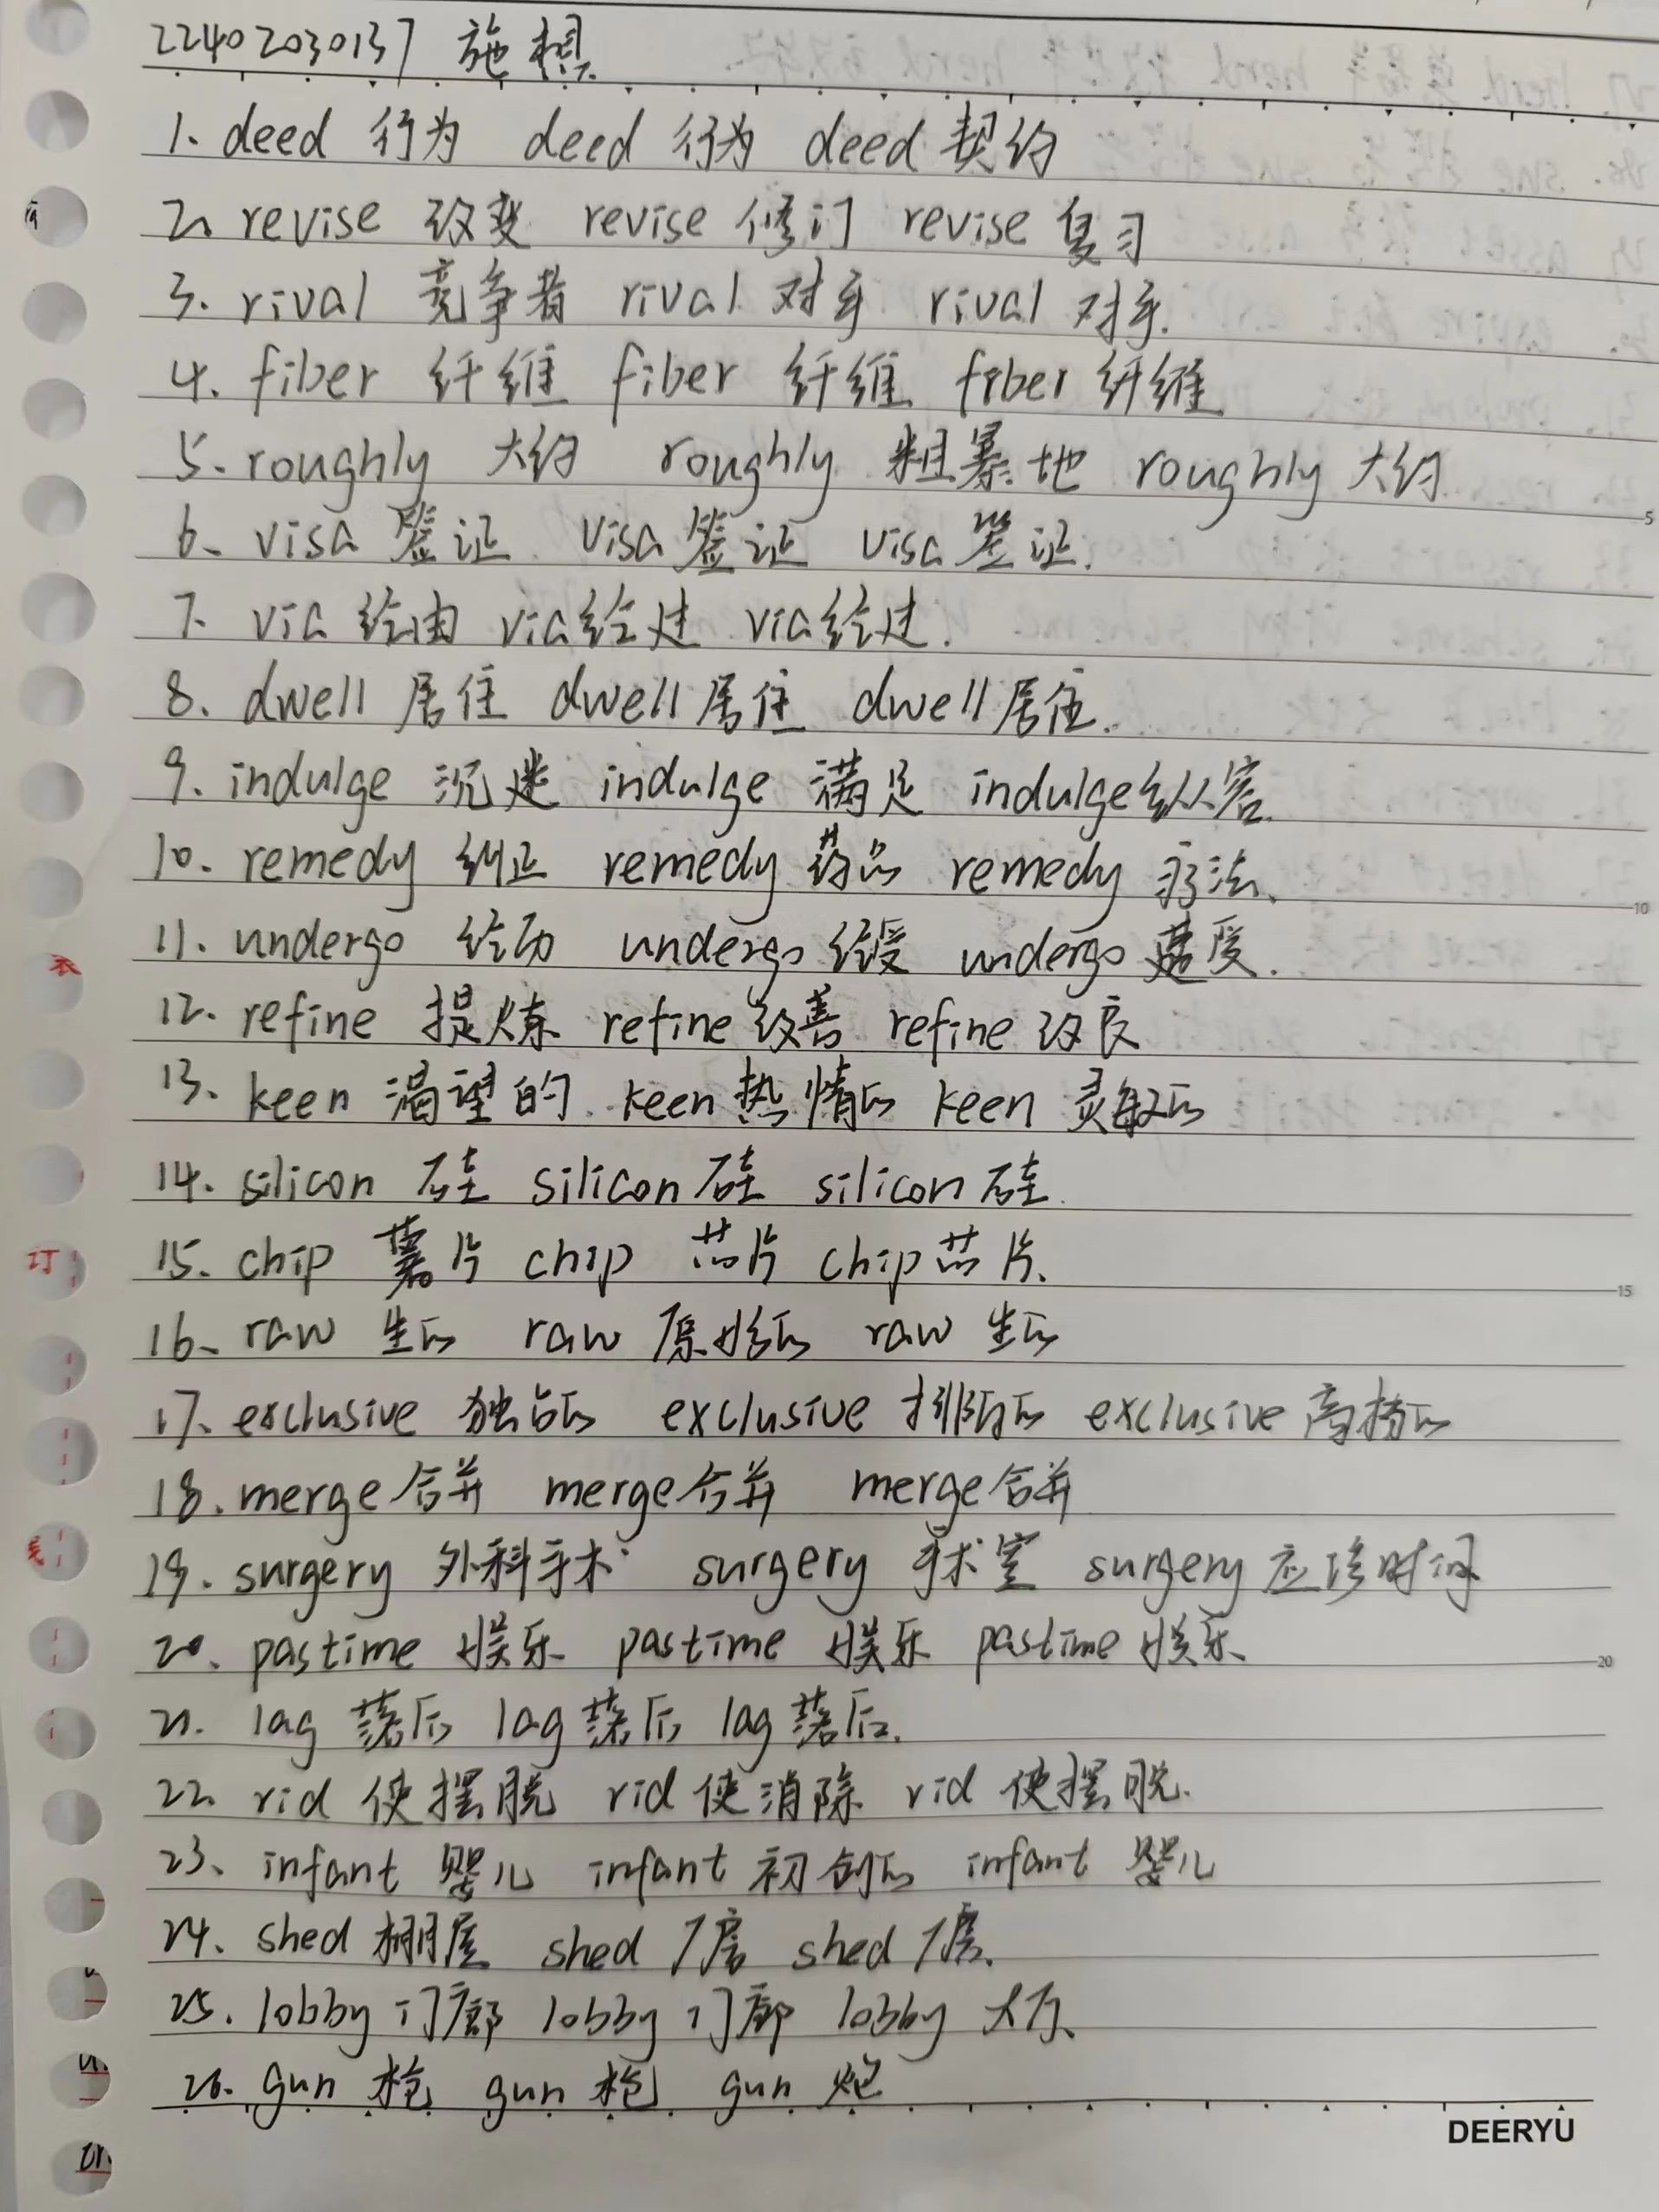 22402030137 施想
1. deed 行为 deed 行为 deed 契约
2. revise 改变 revise 修订 revise 复习
3. rival 竞争者 rival 对手 rival 对手.
4. fiber 纤维 fiber 纤维 fiber 纤维
5. roughly 大约 roughly 粗暴地 roughly 大约
6. visa 签证 visa 签证 visa 签证.
7. via 经由 via 经过 via 经过.
8. dwell 居住 dwell 居住 dwell 居住.
9. indulge 沉迷 indulge 满足 indulge 纵容.
10. remedy 纠正 remedy 药品 remedy 疗法.
11. undergo 经历 undergo 经受 undergo 遭受.
12. refine 提炼 refine 改善 refine 改良
13. keen 渴望的 keen 热情的 keen 灵敏的
14. silicon 硅 silicon 硅 silicon 硅.
15. chip 薯片 chip 芯片 chip 芯片.
16. raw 生的 raw 原始的 raw 生的
17. exclusive 独占的 exclusive 排外的 exclusive 高档的
18. merge 合并 merge 合并 merge 合并
19. surgery 外科手术 surgery 手术室 surgery 应诊时间
20. pastime 娱乐 pastime 娱乐 pastime 娱乐.
21. lag 落后 lag 落后 lag 落后.
22. rid 使摆脱 rid 使消除 rid 使摆脱.
23. infant 婴儿 infant 初创的 infant 婴儿
24. shed 棚屋 shed 厂房 shed 厂房.
25. lobby 门廊 lobby 门廊 lobby 大厅.
26. gun 枪 gun 枪 gun 炮
5
10
15
20
DEERYU